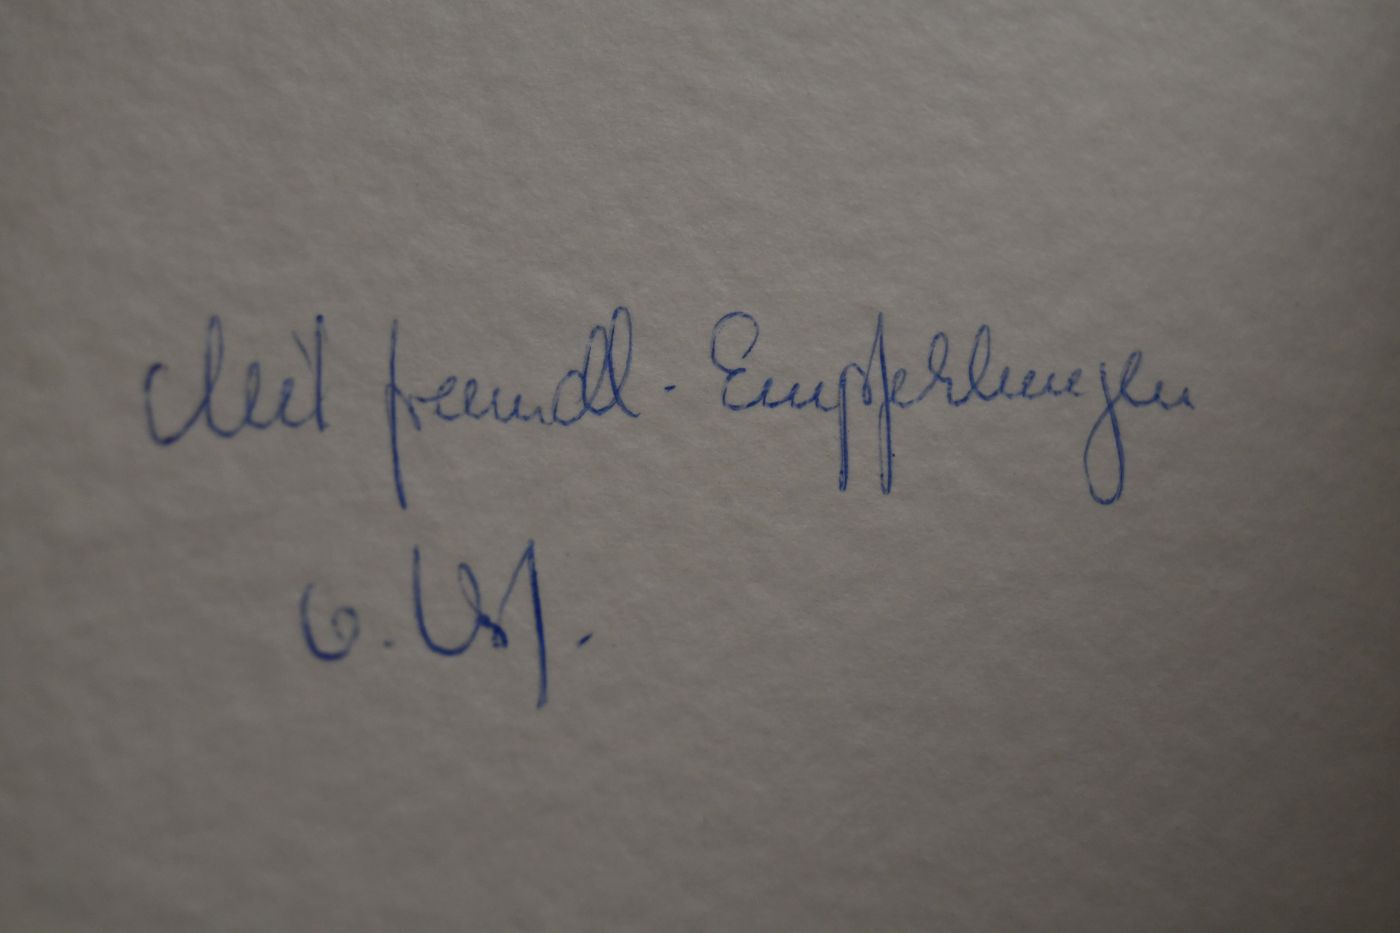 Mit freundl. Empfehlungen
d. Verf.